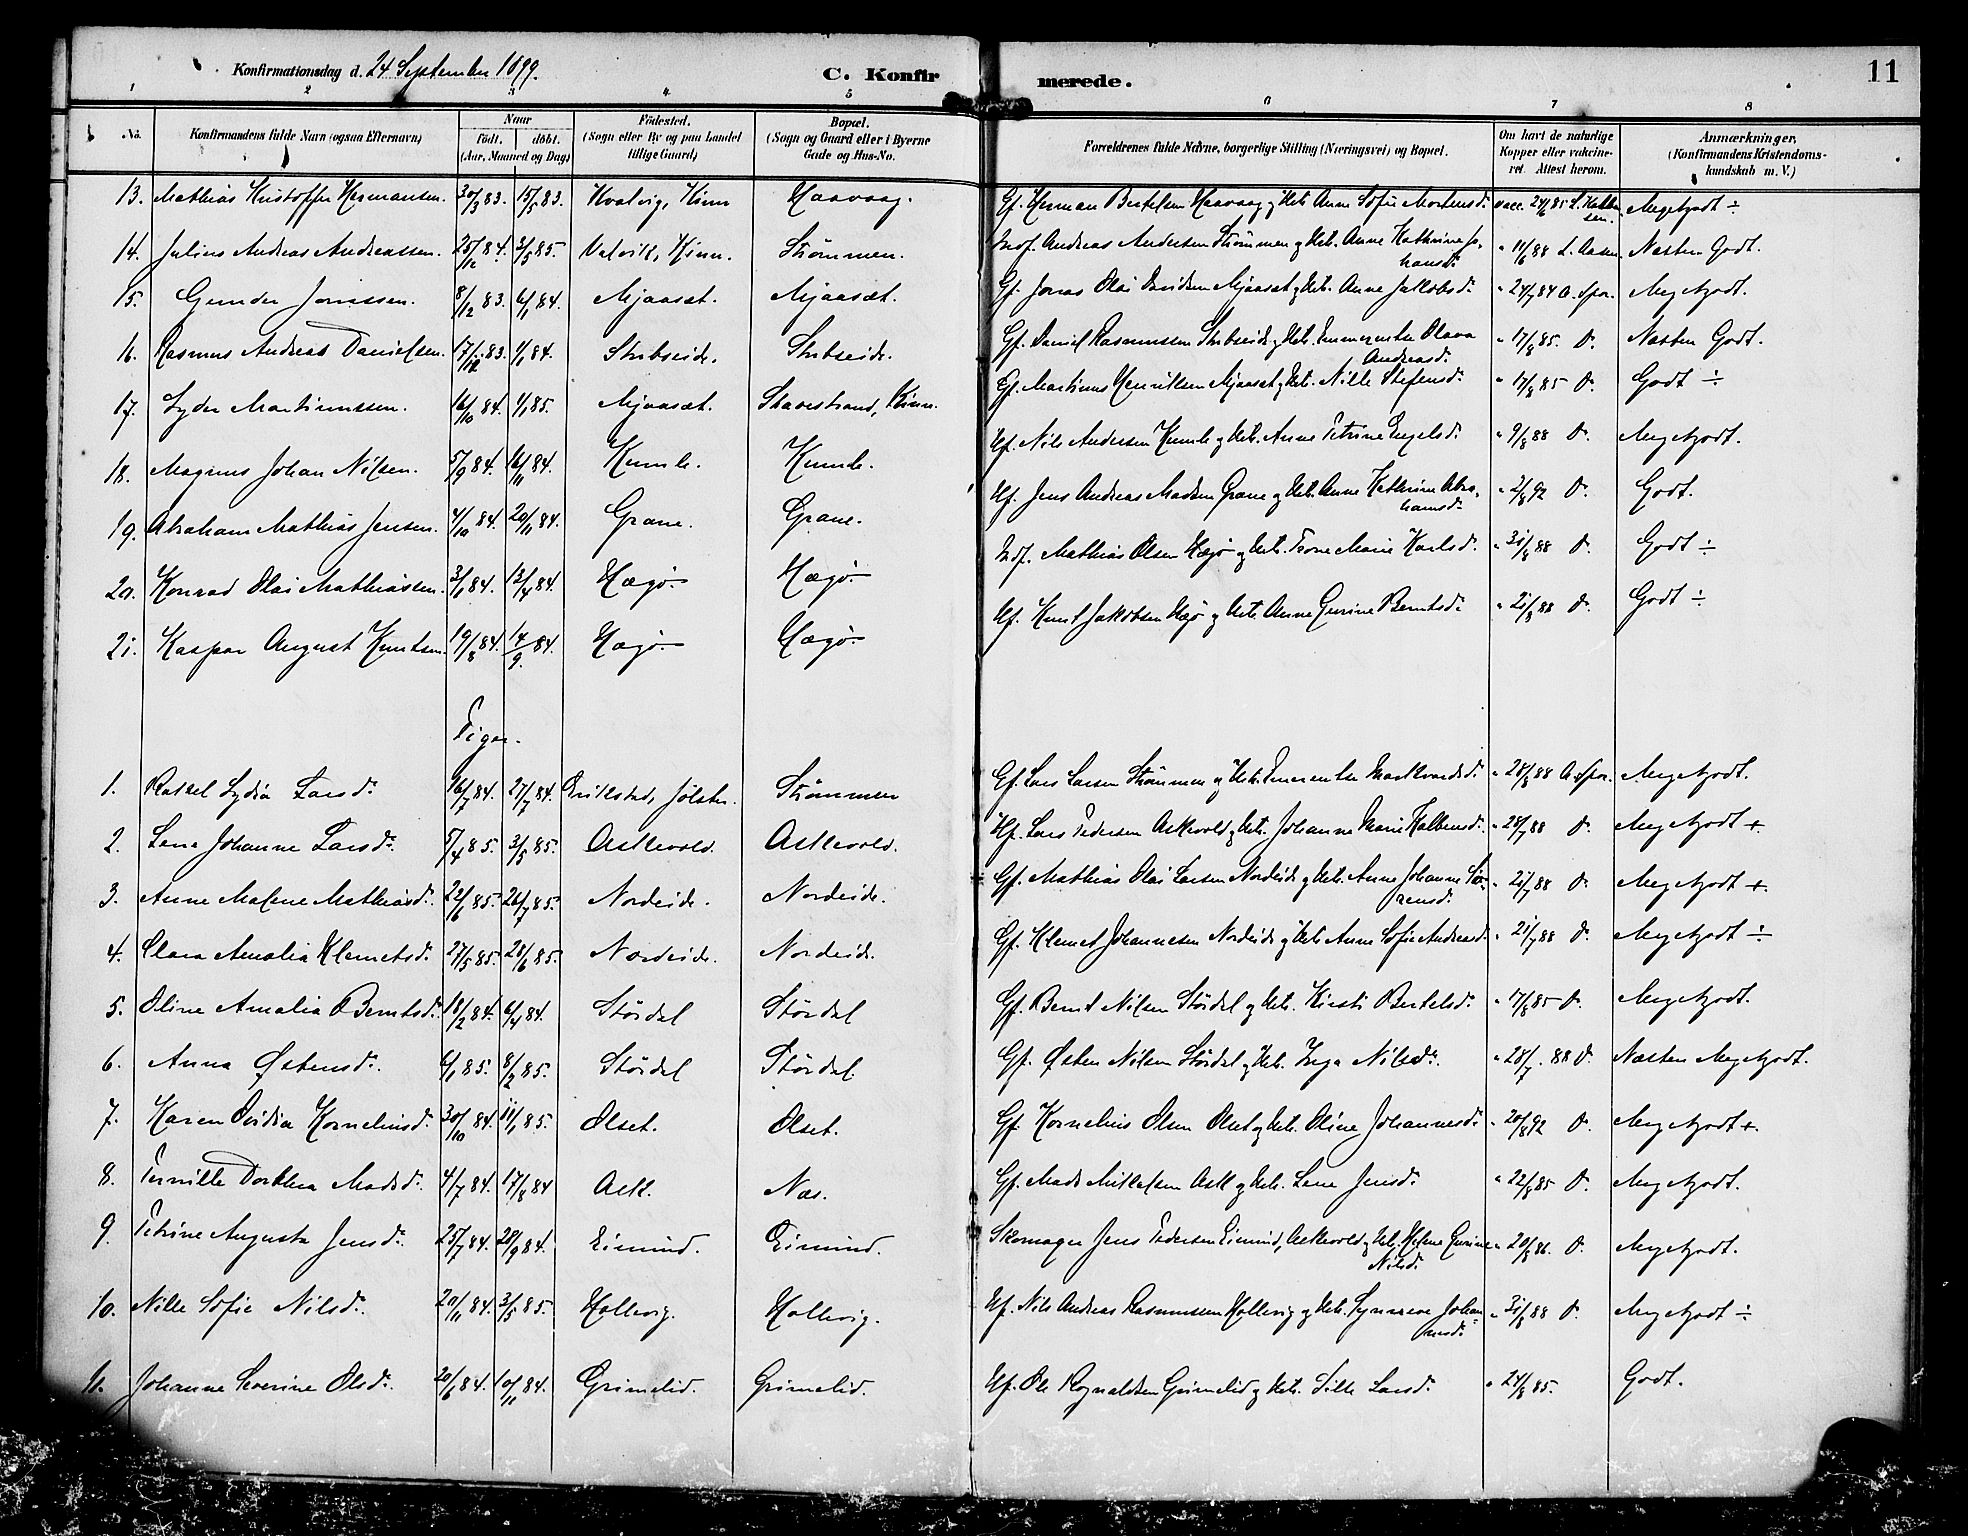 Konfirmationsdag d. 24 September 1899.
C. Konfirmerede.
11
1 2 3 4 5 6 7 8
No.
Konfirmandens fulde Navn (ogsaa Efternavn)
Naar
födt. döbt.
(Aar, Maaned og Dag)
Födested.
(Sogn eller By og paa Landet
tillige Gaard)
Bopæl.
(Sogn og Gaard eller i Byerne
Gade og Hus-No.
Forældrenes fulde Navne, borgerlige Stilling (Næringsvei) og Bopæl.
Om havt de naturlige
Kopper eller vakcine-
ret. Attest herom.
Anmærkninger,
(Konfirmandens Kristendoms-
kundskab m. V.)
13. Mathias Kristoffer Hermansen. 30/3 83. 15/5 83. Kvalvig, Kinn Haavaag. Gf. Herman Bertelsen Haavaag og Hstr. Anne Sofie Mortensd. vacc. 24/6 85 Meget godt ÷
14. Julius Andreas Andreassen. 25/12 84. 3/5 85. Kinn. Strømmen. Andreas Andersen Strømmen og Hstr. Anne Kathrine Jo-
hansd. " 11/6 88 L. Aasen. Næsten Godt.
15. Gunder Jonassen. 8/12 83. 6/1 84. Mjaaset. Mjaasæt. Gf. Jonas Olai Davidsen Mjaaset og Hstr. Anne Jakobsd. " 24/7 84 Meget godt.
16. Rasmus Andreas Danielsen. 17/12 83. 1/1 84. Stubseide. Stubseide. Gf. Daniel Rasmussen Stubseide og Hstr. Emmerentse Olava
Andreasd. " 17/8 85. Do. Næsten Godt.
17. Lyder Martinussen. 16/10 84. 1/1 85. Mjaasæt. Stavestrand, Kinn. Gf. Martinus Henriksen Mjaaset og Hstr. Nille Stefensd. " 17/8 85 Do. Godt ÷
18. Magnus Johan Nilsen. 5/9 84. 16/11 84. Kumle. Kumle. Hf. Nils Andersen Kumle og Hstr. Anne Petrine Engelsd. " 9/8 88 Do. Meget godt.
19. Abraham Mathias Jensen. 4/10 84. 20/11 84. Grane. Grane. Hf. Jens Andreas Madsen Grane og Hstr. Anne Kathrine Abra-
hamsd. " 2/8 92 Do. Godt.
20. Konrad Olai Mathiassen. 3/1 84. 13/4 84. Hægø. Hægø. Mathias Olsen Hægø og Hstr. Trone Marie Karlsd. " 31/8 88 Do. Godt ÷
21. Kaspar August Knutsen. 19/8 84. 14/9. 84. Hægø. Hægø. Hf. Knut Jakobsen Hægø og Hstr. Anne Gurine Berntsd. " 21/8 88 Do. Godt ÷
Piger.
1. Rakel Lydia Larsd. 16/7 84. 27/7 84. Eriksstad, Jølster. Strømmen Gf. Lars Larsen Strømmen og Hstr. Emerentse Markvardsd. " 28/8 88 Meget godt.
2. Lene Johanne Larsd. 5/4 85. 3/5 85. Askevold. Askevold. Hf. Lars Pedersen Askevold og Hstr. Johanne Marie Kolbensd. " 28/7 88 Do. Meget godt +
3. Anne Malene Mathiasd. 22/6 85. 26/7 85. Nordeide. Nordeide. Gf. Mathias Olai Larsen Nordeide og Hstr. Anne Johanne Sø-
rensd. " 21/7 88 Do. Meget godt +
4. Clara Amalia Klemetsd. 27/5 85. 28/6 85. Nordeide. Nordeide. Gf. Klemet Johannesen Nordeide og Hstr. Anne Sofie Andreasd. " 21/7 88 Do. Meget godt ÷
5. Oline Amalia Berntsd. 18/2 84. 6/4 84. Stórdal Stórdal Gf. Bernt Nilsen Stórdal og Hstr. Kirsti Bertelsd. " 17/8 85 Do. Meget godt.
6. Anna Østensd. 6/1 85. 8/2 85. Stórdal Stórdal. Gf. Østen Nilsen Stórdal og Hstr. Inga Nilsd. " 28/7. 88 Do. Næsten Meget godt.
7. Karen Ovidia Korneliusd. 30/10 84. 11/1 85. Olset. Olset. Gf. Kornelius Olsen Olset og Hstr. Oline Johannesd. " 20/8 92 Do. Meget godt +.
8. Pernille Dorthea Madsd. 4/7 84. 17/8 84 Ask. Næs. Gf. Mads Mikkelsen Ask og Hstr. Lene Jensd. " 22/8 85 Do. Meget godt.
9. Petrine Augusta Jensd. 25/7 84. 28/9 84. Eimind. Eimind. Skomager Jens Pedersen Eimind, Askevold og Hstr. Helene Gurine
Nilsd. " 20/8 86. Do. Meget godt.
10. Nille Sofie Nilsd. 20/11 84. 3/5 85. Hollevig. Hollevig. Hf. Nils Andreas Rasmussen Hollevig og Hstr. Synneve Johan-
nesd. " 31/8 88 Do. Meget godt ÷
11. Johanne Severine Olsd. 20/6 84. 10/11 84. Grimelid. Grimelid. Hf. Ole Rognaldsen Grimelid og Hstr. Sille Larsd. " 24/8 85. Godt.